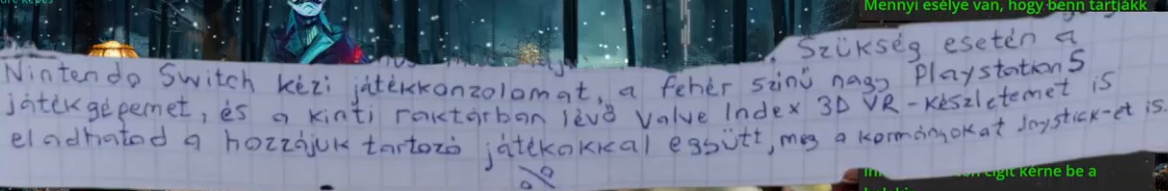 Mennyi esélye van, hogy benn tartják
Szükség esetén a
Nintendo Switch kézi játékkonzolomat, a fehér színű nagy Playstation5
játékgépemet, és a kinti raktárban lévő Valve Index 3D VR-készletemet is
eladhatod a hozzájuk tartozó játékokkal együtt, meg a kormányokat Joystick-et is.
cigit kérne be a
%